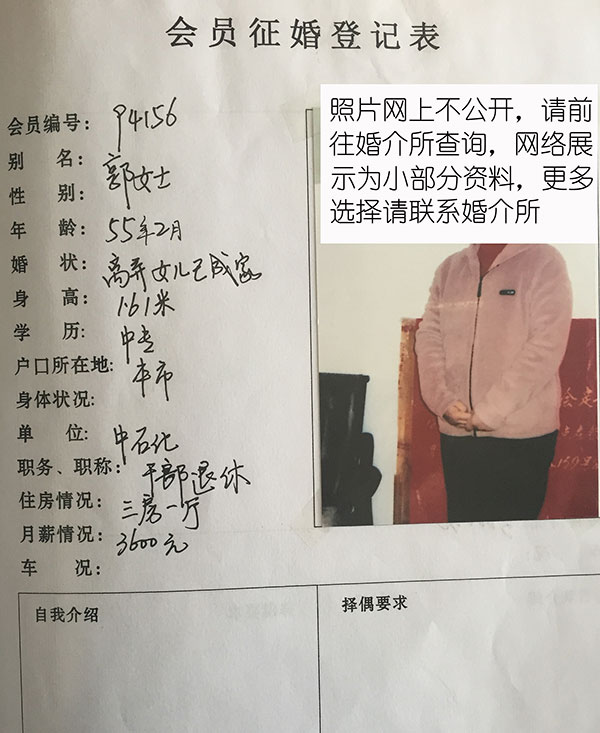 会员征婚登记表
照片网上不公开，请前
往婚介所查询，网络展
示为小部分资料，更多
选择请联系婚介所
会员编号： P4156
别 名： 郭女士
性 别：
年 龄： 55年2月
婚 状： 离异女儿已成家
身 高： 1.61米
学 历： 中专
户口所在地: 本市
身体状况:
单 位: 中石化
职务、职称: 干部退休
住房情况: 三房一厅
月薪情况: 3600元
车 况:
自我介绍
择偶要求